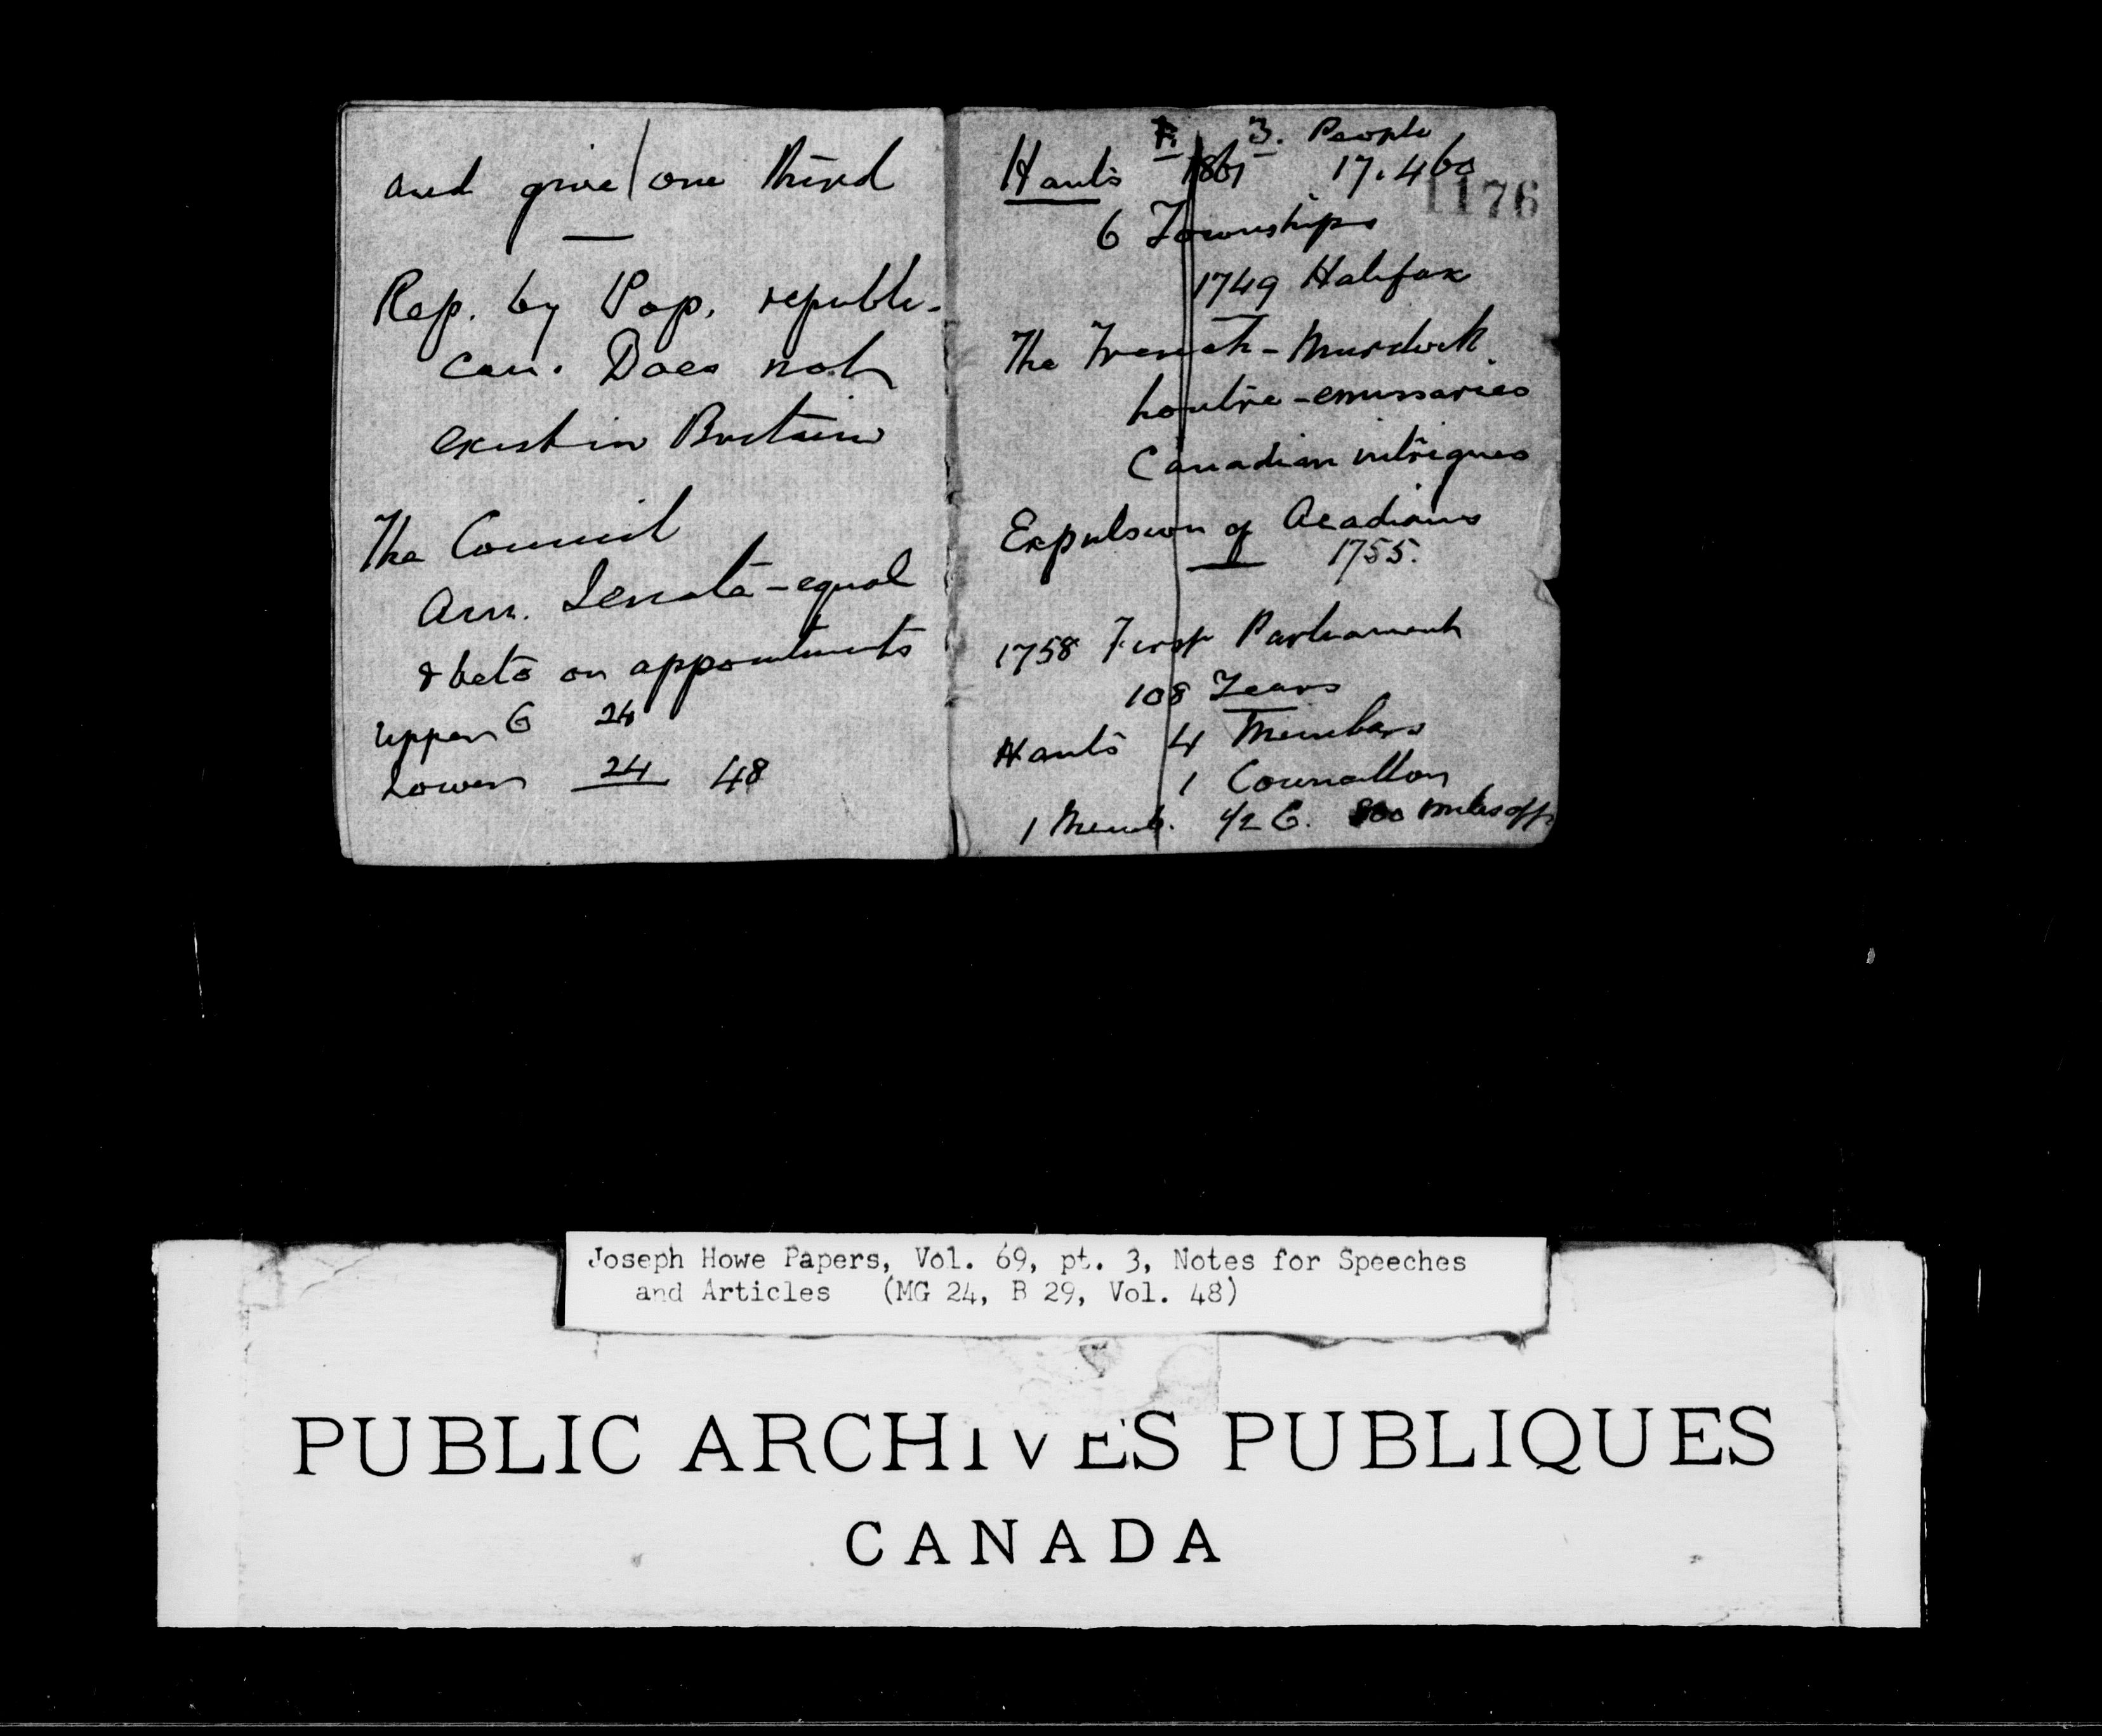 and give one third
Rep. by Pop. republi-
can. Does not
exist in Britain
The Council
Am. Senate - equal
& veto on appointments
Upper C 24
Lower 24 48
3. People
Hants 1861 17.460
1176
6 Townships
1749 Halifax
The French - Murdock.
Loutre - emissaries
Canadian intrigues
Expulsion of Acadians
1755.
1758 First Parliament
108 Years
Hants 4 Members
1 Councillor
1 Memb. 1/2 C. 800 miles off
Joseph Howe Papers, Vol. 69, pt. 3, Notes for Speeches
and Articles (MG 24, B 29, Vol. 48)
PUBLIC ARCHIVES PUBLIQUES
CANADA